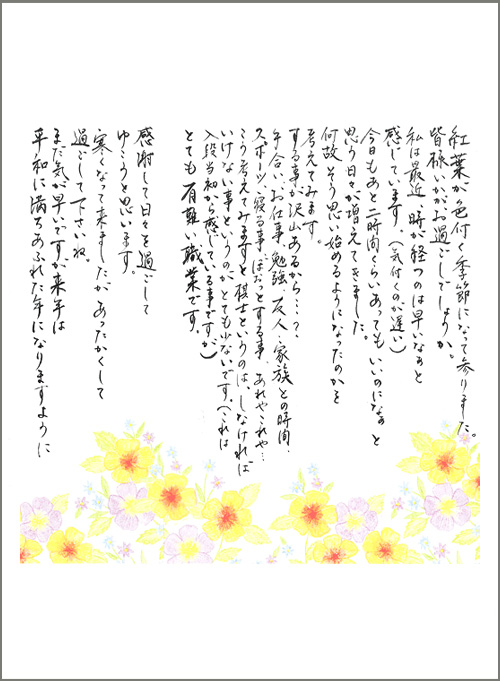 紅葉が色付く季節になって参りました。
皆様いかがお過ごしでしょうか。
私は最近、時が経つのは早いなぁと
感じています。(気付くのが遅い)
今日もあと二時間くらいあってもいいのになぁと
思う日々が増えてきました。
何故そう思い始めるようになったのかを
考えてみます。
する事が沢山あるから…?
手合い、お仕事、勉強、友人・家族との時間、
スポーツ、寝る事、ぼおっとする事、あれやこれや…
こう考えてみますと棋士というのは、しなければ
いけない事というのがとても少ないです。(これは
入段当初から感じている事ですが)
とても有難い職業です。
感謝して日々を過ごして
ゆこうと思います。
寒くなって来ましたがあったかくして
過ごして下さいね。
まだ気が早いですが来年は
平和に満ちあふれた年になりますように